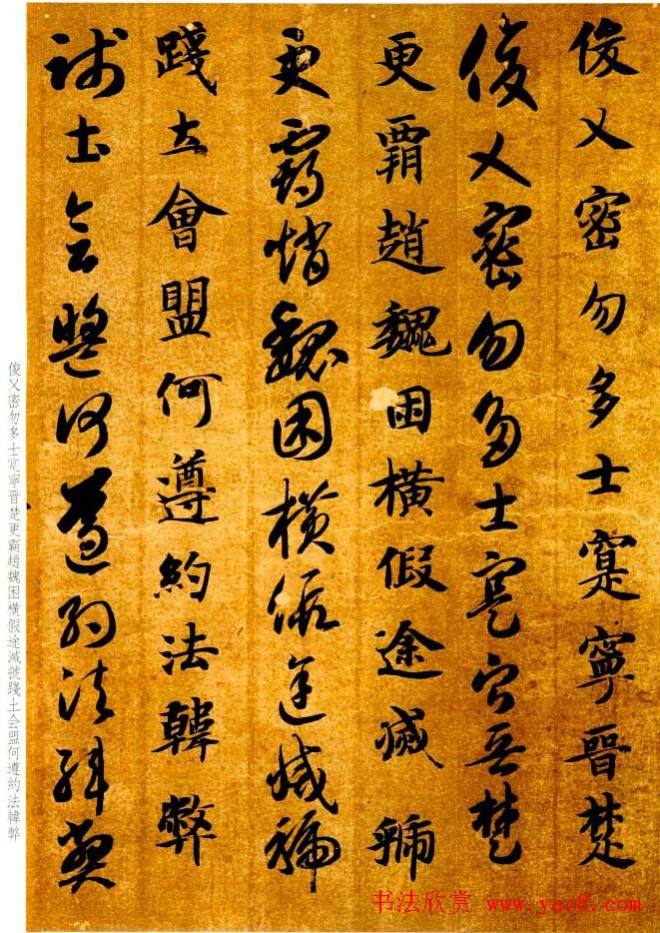 俊乂密勿多士寔寧晉楚
俊乂密勿多士寔寧晉楚
更霸趙魏困橫假途滅虢
更霸趙魏困橫假途滅虢
踐土會盟何遵約法韓弊
踐土會盟何遵約法韓弊
俊乂密勿多士寔寧晉楚更霸趙魏困橫假途滅虢踐土会盟何遵約法韓弊
书法欣赏 www.yac8.com